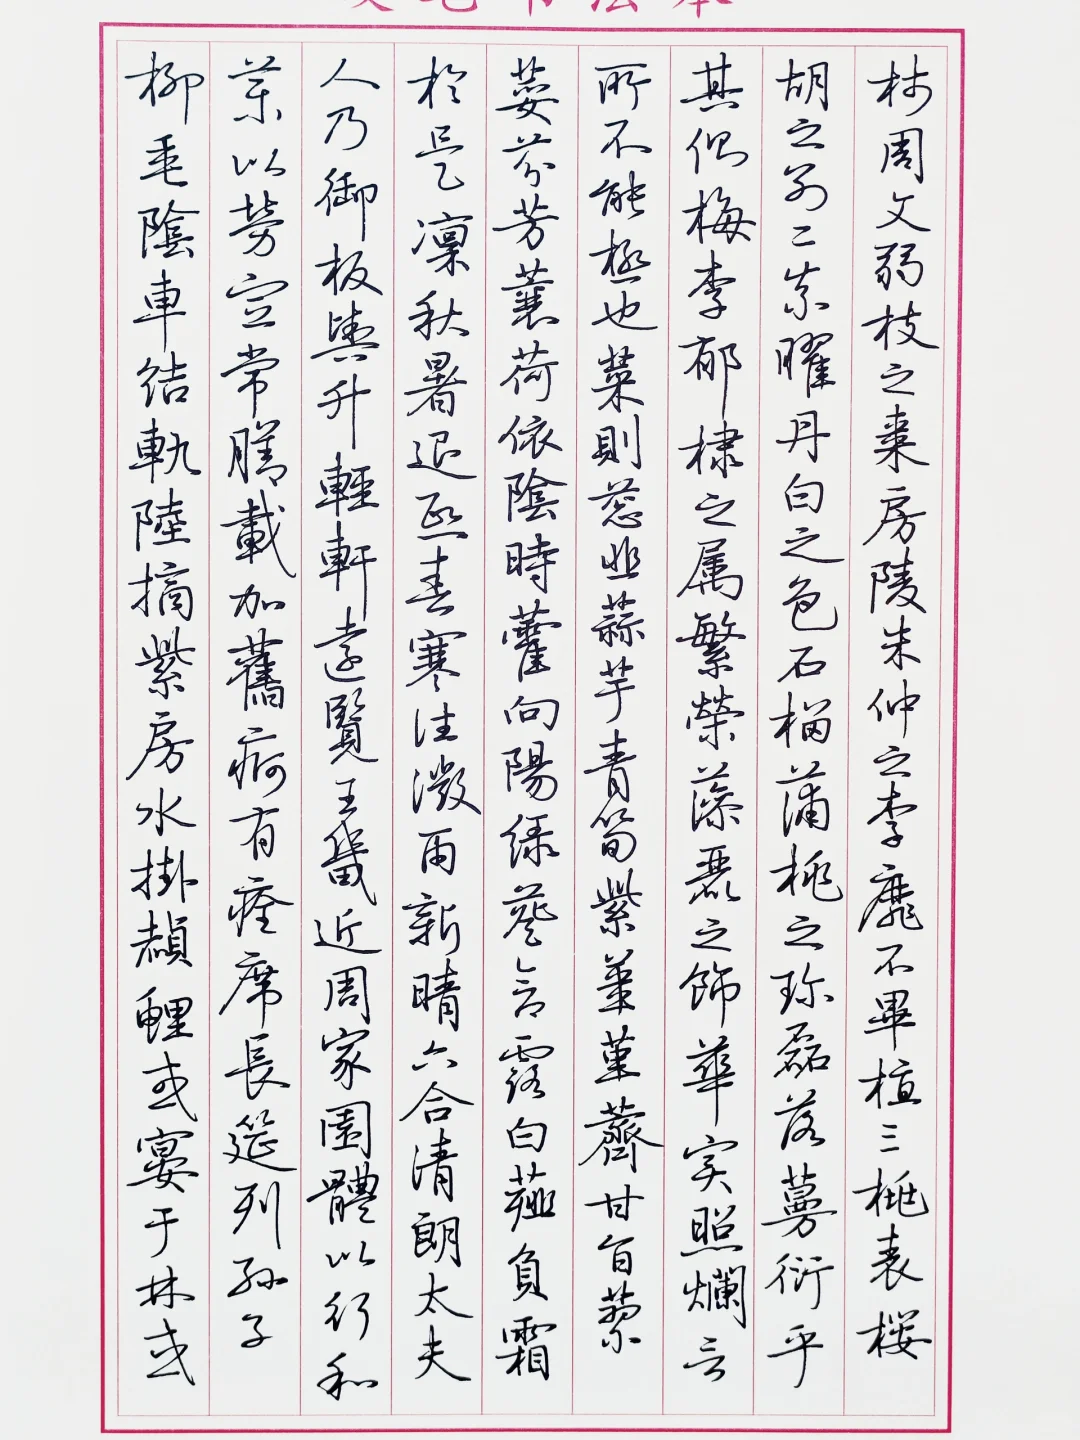 硬笔书法本
柿周文弱枝之棗房陵朱仲之李靡不畢植三桃表櫻
胡之别二柰曜丹白之色石榴蒲桃之珎磊落蔓衍乎
其側梅李郁棣之属繁榮藻麗之飾華实照爛言
所不能極也菜則葱韭蒜芋青筍紫薑菫薺甘旨蓼
荽芬芳蘘荷依陰時藿向陽緑葵含露白薤負霜
於是凛秋暑退熙春寒往微雨新晴六合清朗太夫
人乃御板輿升輕軒遠覽王畿近周家園體以行和
藥以勞宣常膳載加舊痾有痊席長筵列孫子
柳垂陰車結軌陸摘紫房水掛赬鯉或宴于林或